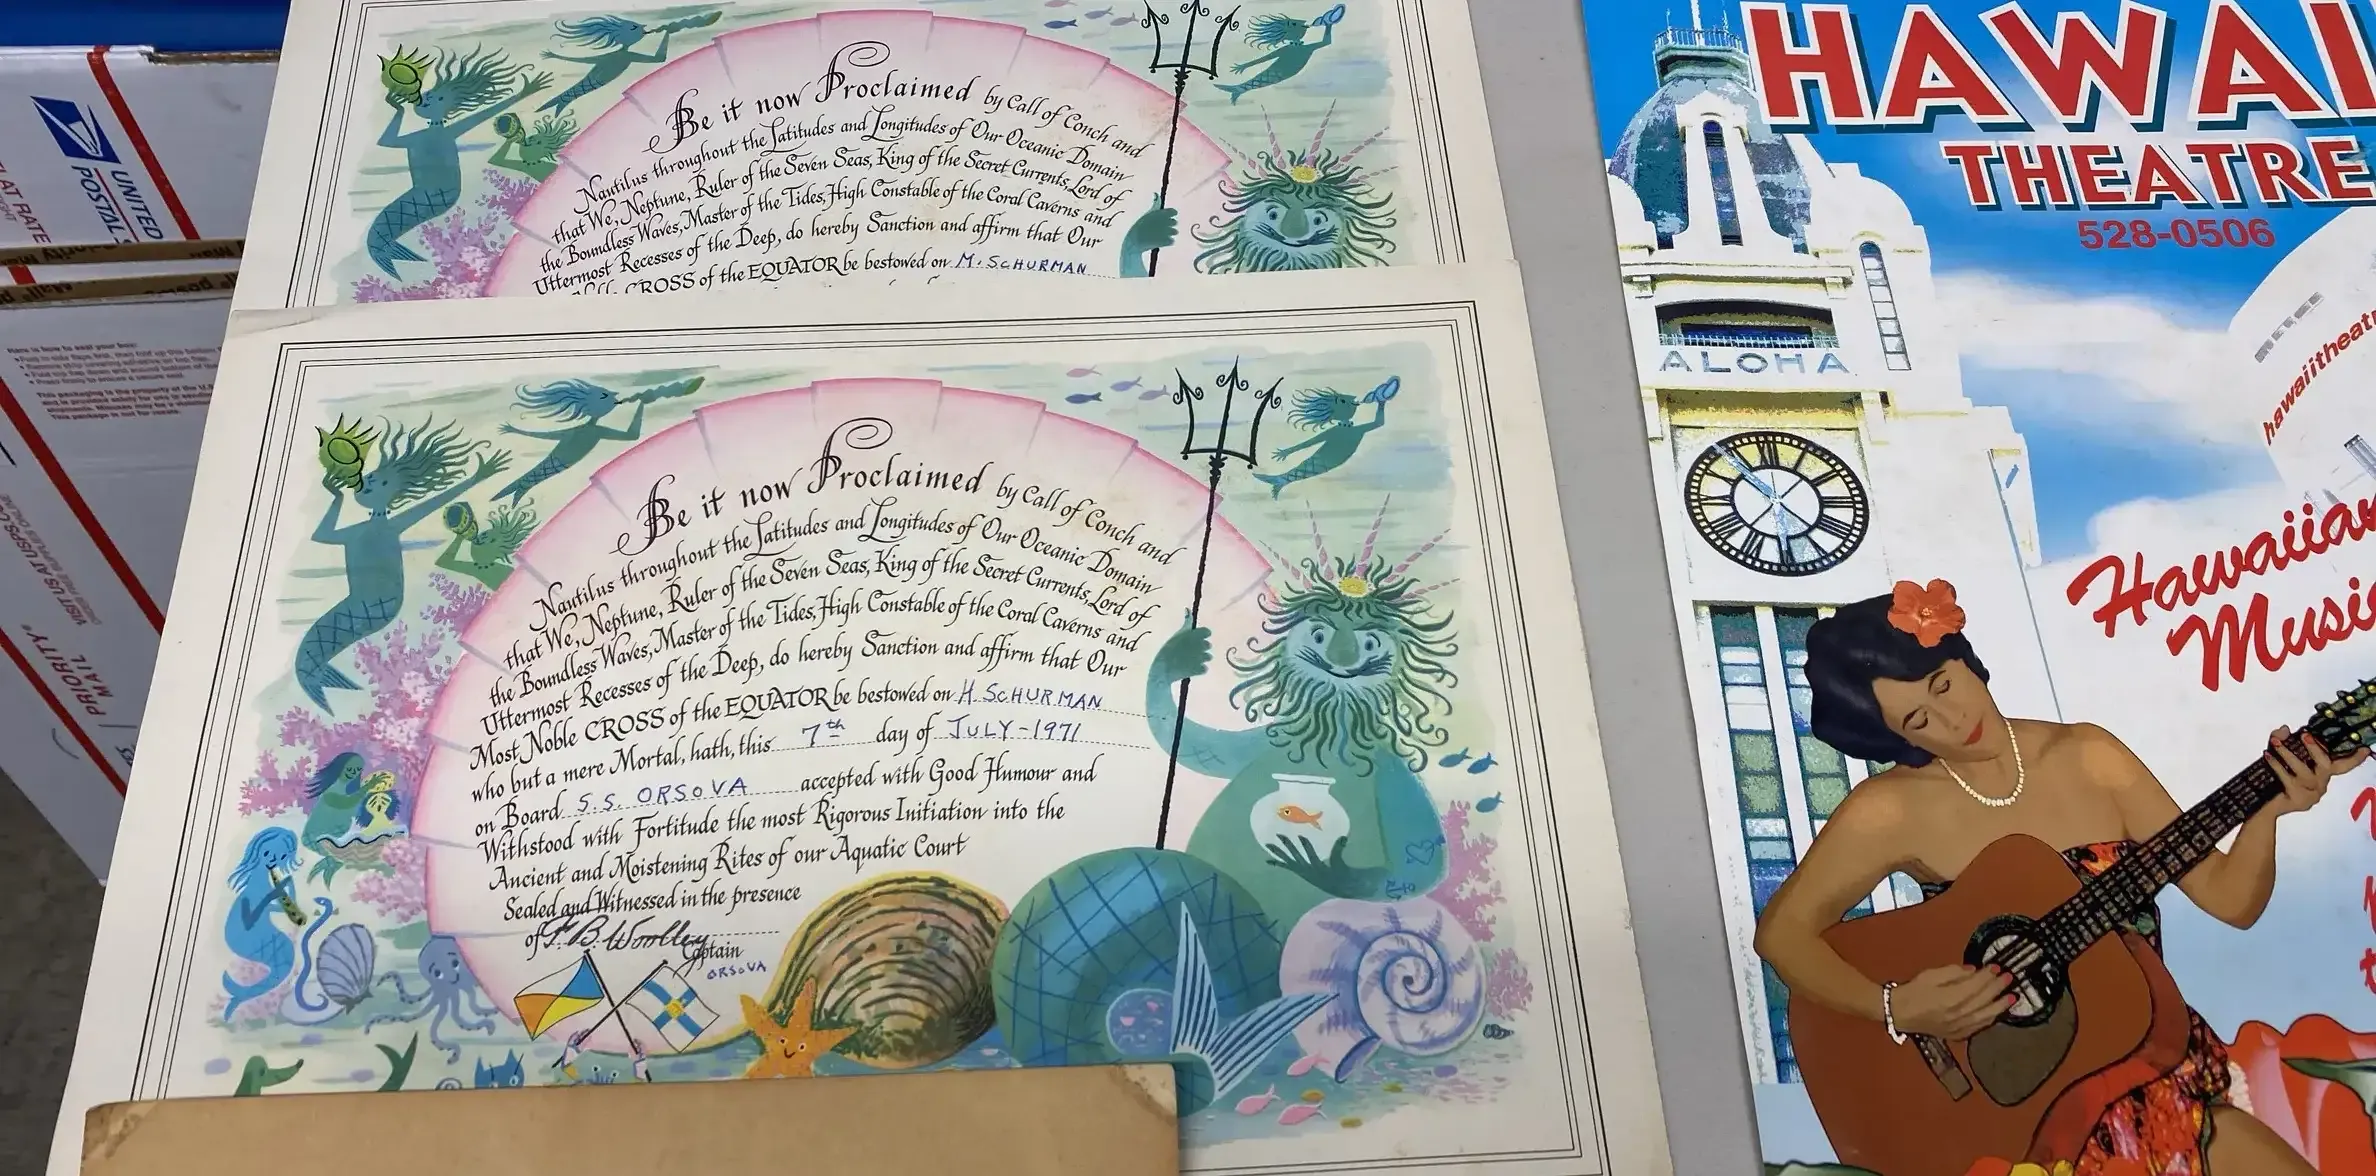 Be it now Proclaimed by Call of Conch and
Nautilus throughout the Latitudes and Longitudes of Our Oceanic Domain
that We, Neptune, Ruler of the Seven Seas, King of the Secret Currents, Lord of
the Boundless Waves, Master of the Tides, High Constable of the Coral Caverns and
Uttermost Recesses of the Deep, do hereby Sanction and affirm that Our
CROSS of the EQUATOR be bestowed on M. SCHURMAN
Be it now Proclaimed by Call of Conch and
Nautilus throughout the Latitudes and Longitudes of Our Oceanic Domain
that We, Neptune, Ruler of the Seven Seas, King of the Secret Currents, Lord of
the Boundless Waves, Master of the Tides, High Constable of the Coral Caverns and
Uttermost Recesses of the Deep, do hereby Sanction and affirm that Our
Most Noble CROSS of the EQUATOR be bestowed on H. SCHURMAN
who but a mere Mortal, hath, this 7th day of JULY-1971
on Board S.S. ORSOVA accepted with Good Humour and
Withstood with Fortitude the most Rigorous Initiation into the
Ancient and Moistening Rites of our Aquatic Court
Sealed and Witnessed in the presence
of Woolley
Captain
ORSOVA
HAWAI
THEATRE
528-0506
ALOHA
hawaiitheatr
Hawaiian
Musi
UNITED
POSTAL
PRIORITY
MAIL